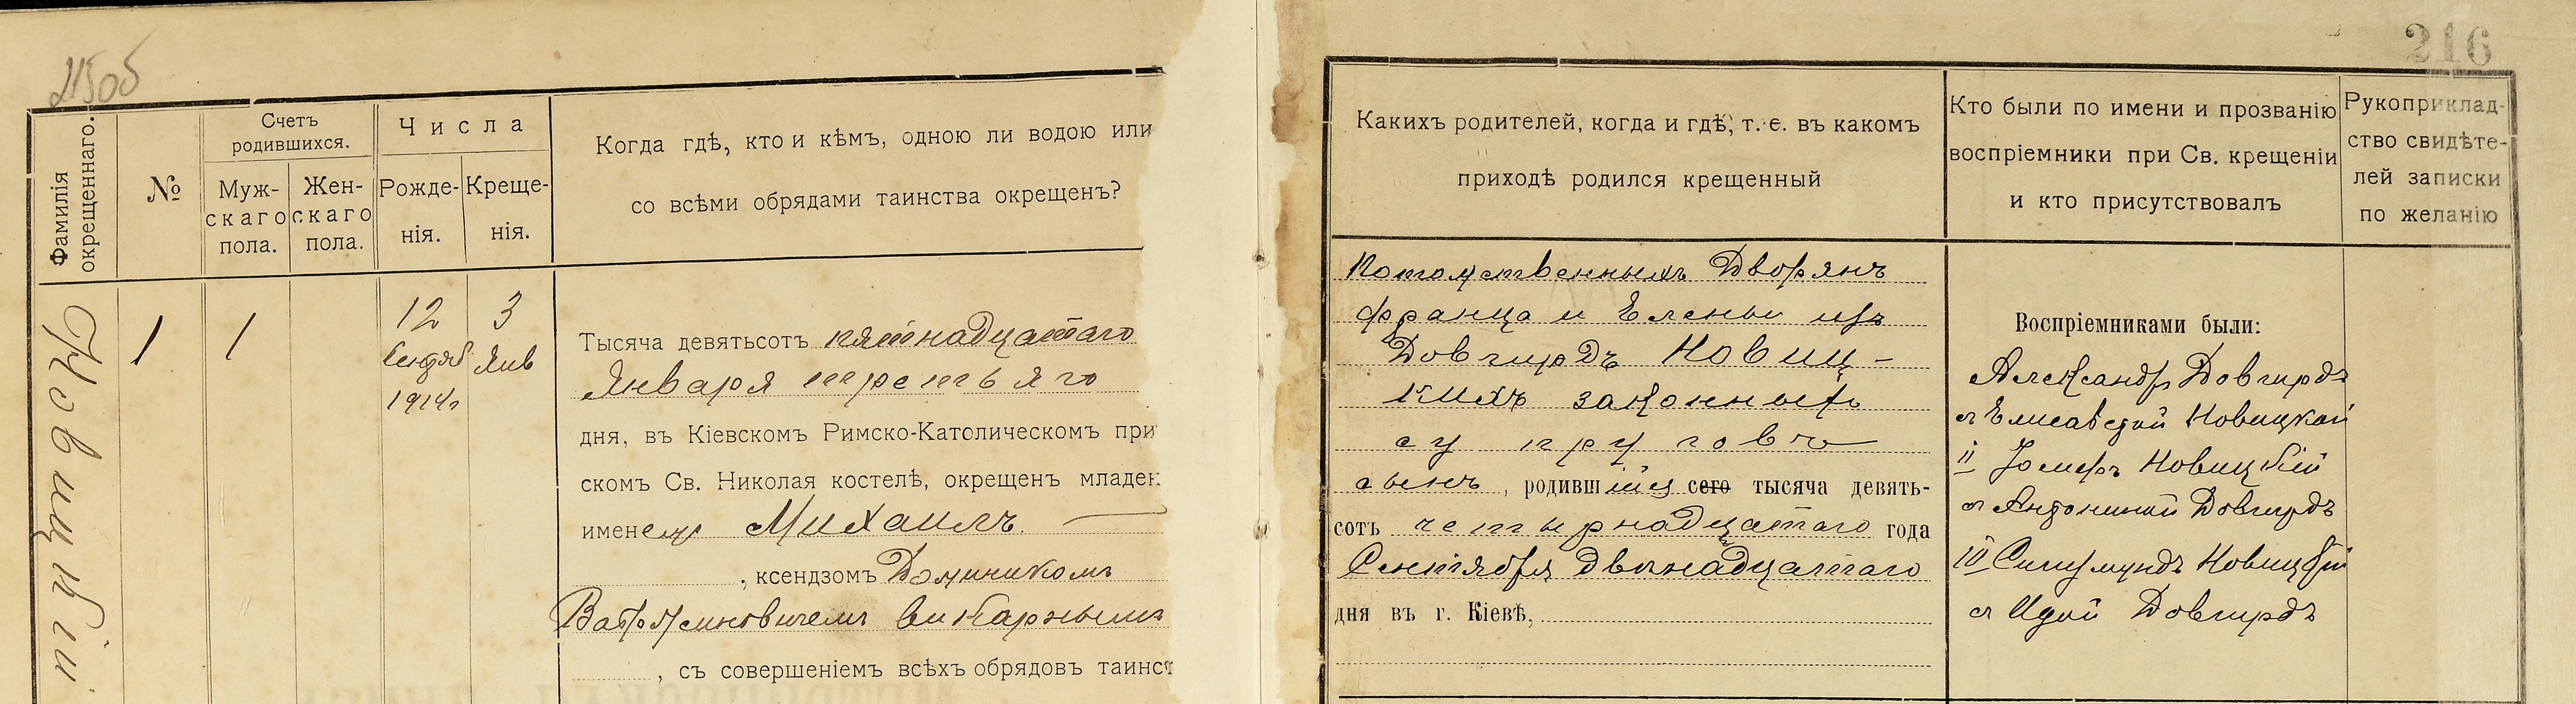 215об
216
Фамилія
окрещеннаго.
№
Счетъ
родившихся.
Муж-
скаго
пола.
Жен-
скаго
пола.
Числа
Рожде-
нія.
Креще-
нія.
Когда гдѣ, кто и кѣмъ, одною ли водою или
со всѣми обрядами таинства окрещенъ?
Новицкій
1
1
12
Сентяб
1914г
3
Янв
Тысяча девятьсотъ пятнадцатаго
Января третьяго
дня, въ Кіевскомъ Римско-Католическомъ при
скомъ Св. Николая костелѣ, окрещенъ младен
именемъ Михаилъ.
, ксендзомъ Доминикомъ
викарнымъ
, съ совершеніемъ всѣхъ обрядовъ таинст
Какихъ родителей, когда и гдѣ, т. е. въ какомъ
приходѣ родился крещенный
Потомственныхъ Дворянъ
Франца и Елены изъ
Довгирдъ Новиц-
кихъ законныхъ
супруговъ
сынъ, родившійся сего тысяча девять-
сотъ четырнадцатаго года
Сентября двенадцатаго
дня въ г. Кіевѣ,
Кто были по имени и прозванію
воспріемники при Св. крещеніи
и кто присутствовалъ
Воспріемниками были:
Александръ Довгирдъ
съ Елисаветой Новицкой
II Іосифъ Новицкій
съ Антониной Довгирдъ
III Сигизмундъ Новицкій
съ Идой Довгирдъ
Рукоприклад-
ство свидѣте-
лей записки
по желанію